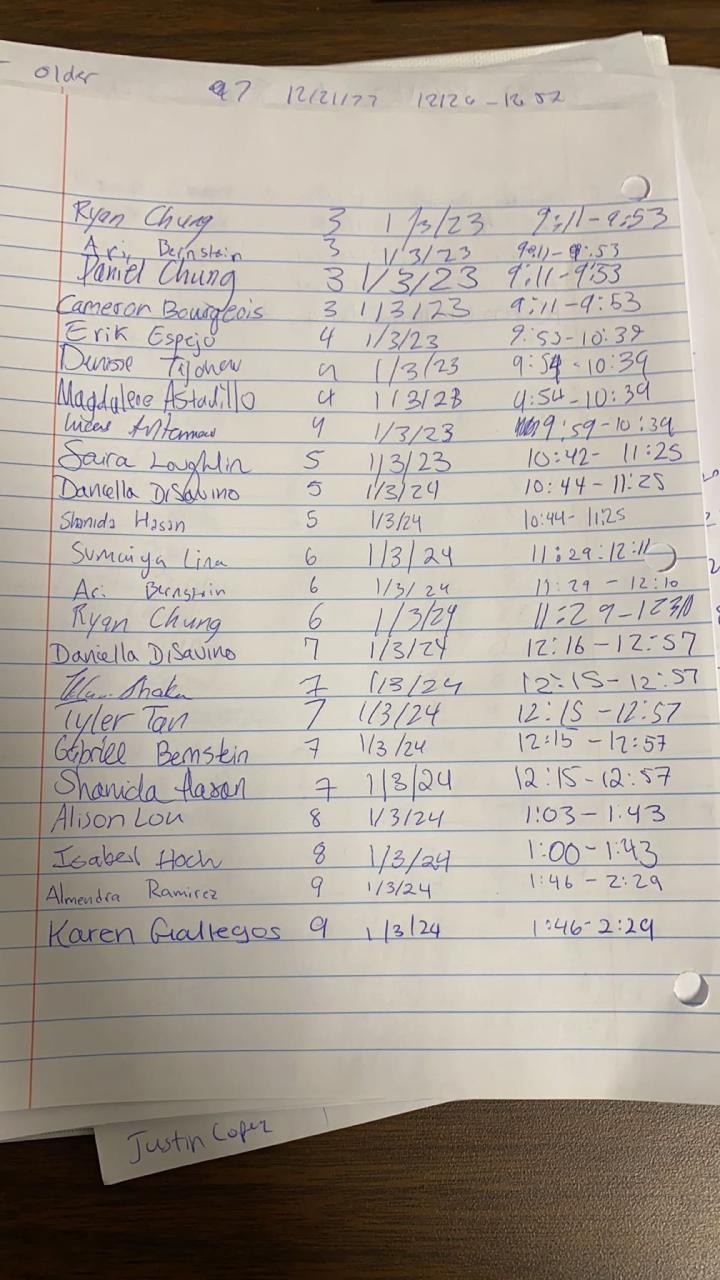 older
7 12/21/22
Ryan Chung 3 1/3/23 9:11-9:53
Ari Bernstein 3 1/3/23 9:11-9:53
Daniel Chung 3 1/3/23 9:11-9:53
Cameron Bourgeois 3 1/3/23 9:11-9:53
Erik Espejo 4 1/3/23 9:53-10:39
4 1/3/23 9:54-10:39
Magdalene Astadillo 4 1/3/23 9:54-10:39
Lucas 4 1/3/23 9:59-10:39
Saira Loughlin 5 1/3/23 10:42-11:25
Daniella DiSavino 5 1/3/24 10:44-11:25
Shanida Hasan 5 1/3/24 10:44-11:25
Sumaiya Lina 6 1/3/24 11:29:12:11
Ari Bernstein 6 1/3/24 11:29-12:10
Ryan Chung 6 1/3/24
Daniella DiSavino 7 1/3/24 12:16-12:57
7 1/3/24 12:15-12:57
Tyler Tan 7 1/3/24 12:15-12:57
Gabriel Bernstein 7 1/3/24 12:15-12:57
Shanida Hasan 7 1/3/24 12:15-12:57
Alison Lou 8 1/3/24 1:03-1:43
Isabel Hoch 8 1/3/24 1:00-1:43
Almendra Ramirez 9 1/3/24 1:46-2:29
Karen Gallegos 9 1/3/24 1:46-2:29
Justin Lopez